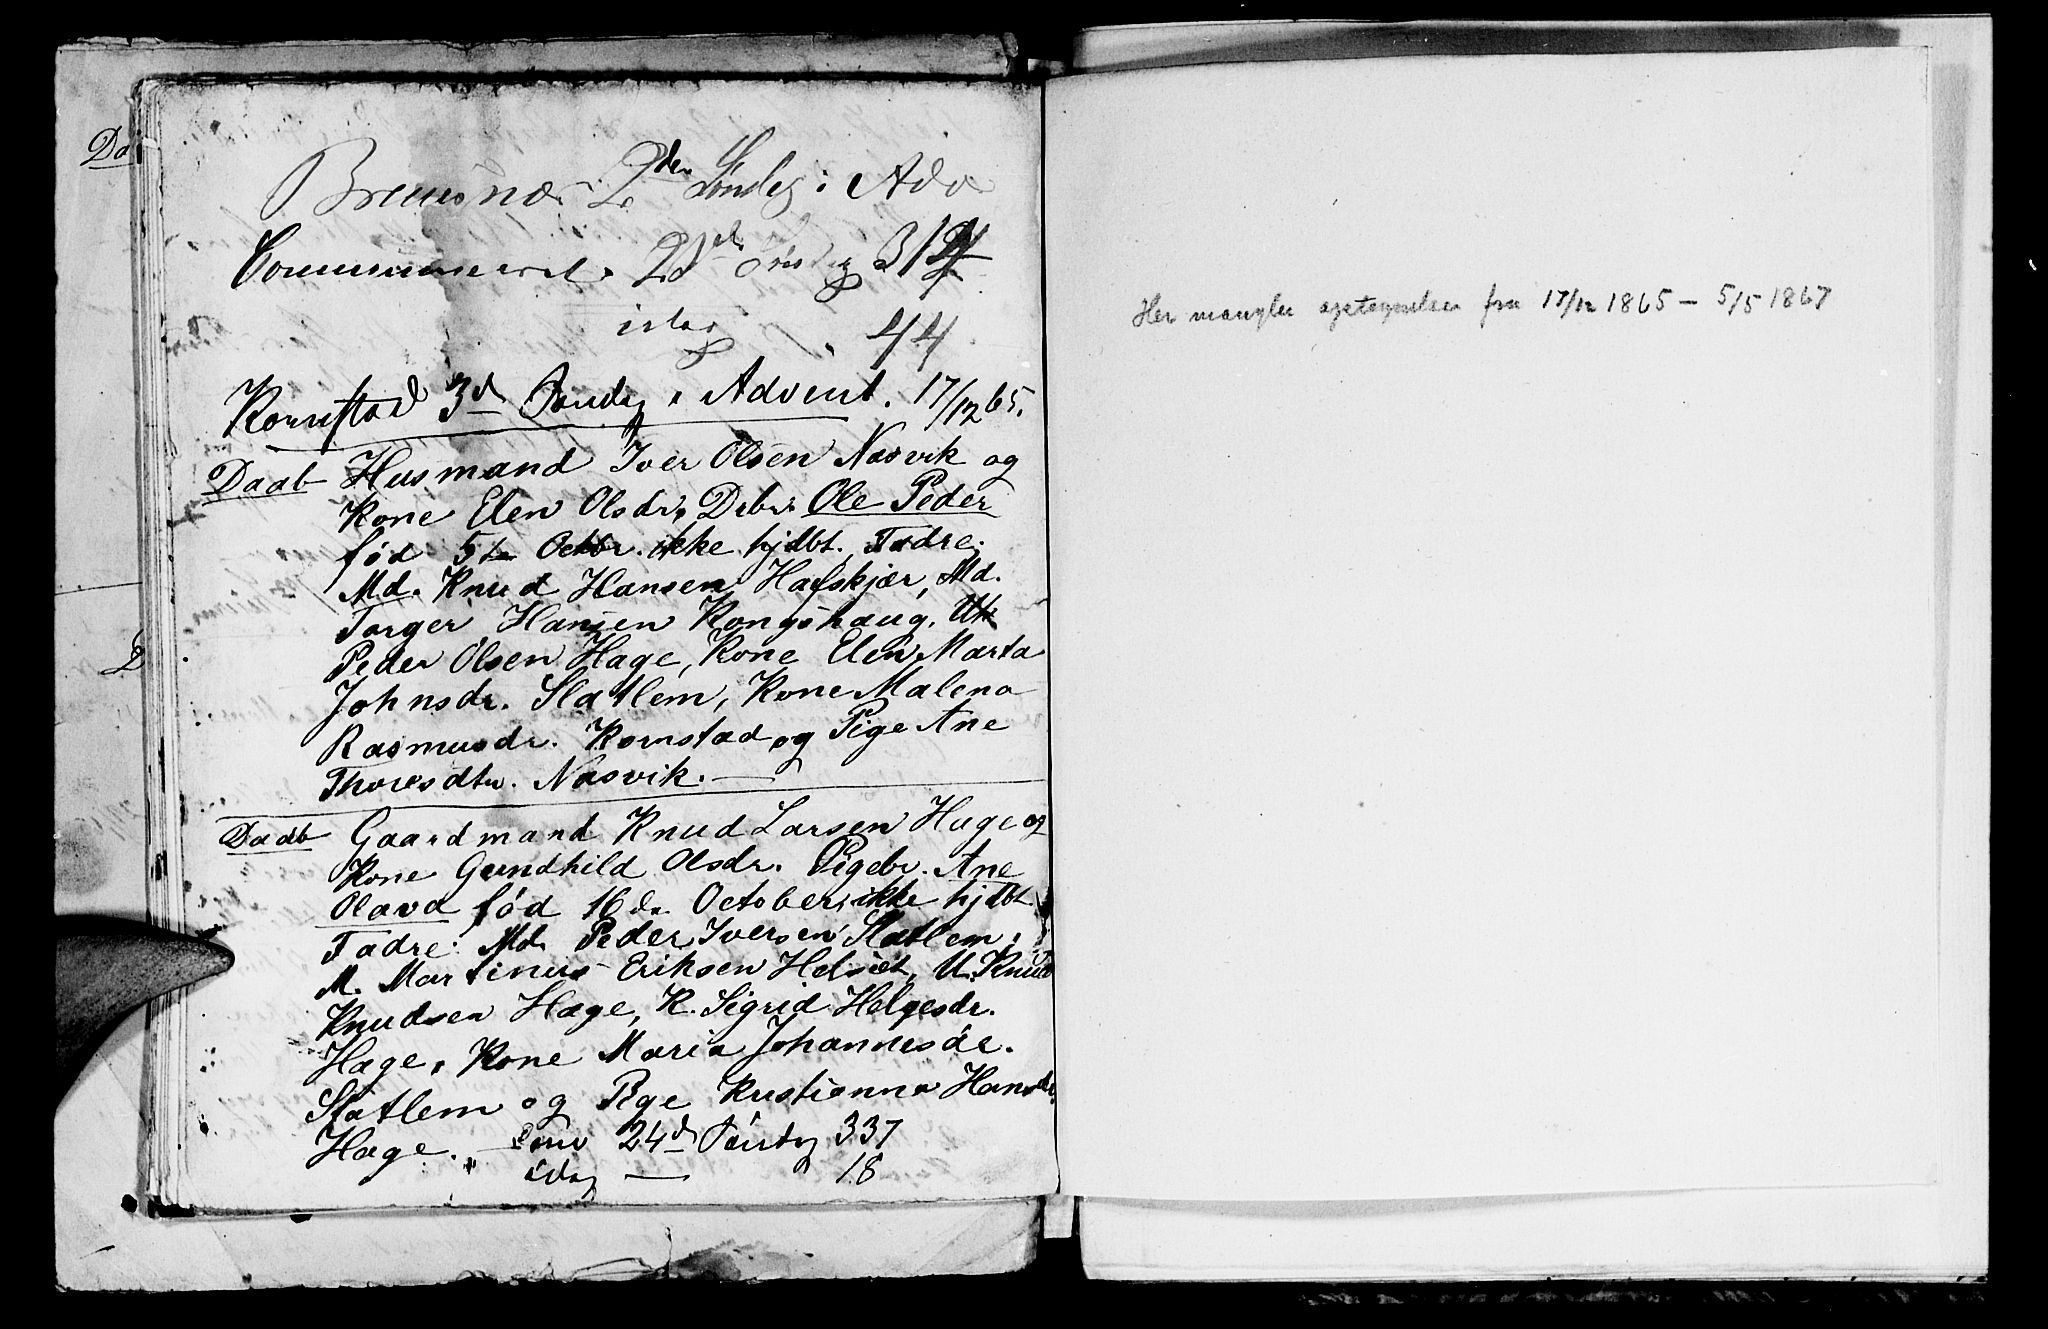 Da
D
Bremsnæs 2den Søndag i Adv
Communicerede 23de Søndag 312
idag 44
Kornstad 3d Søndag i Advent. 17/12 65.
Daab Husmand Iver Olsen Næsvik og
Kone Elen Olsdr, Drbr: Ole Peder
fød 5te Octbr. ikke hjdbt. Fadre:
Md. Knud Hansen Hafskjær, Md.
Torger Hansen Kongshaug,
Peder Olsen Hage, Kone Elen Marta
Johnsdr. Slatlem, Kone Malena
Rasmusdr. Kornstad og Pige Ane
Thoresdtr. Næsvik.
Daab Gaardmand Knud Larsen Hage og
Kone Gundhild Olsdr. Pigebr. Ane
Olava fød 16de October, ikke hjdbt
Fadre: Md. Peder Iversen Slatlem,
M. Martinus Eriksen Helsæt, U. Knud
Knudsen Hage, K. Sigrid Helgesdr.
Hage, Kone Maria Johannesdr.
Slatlem og Pige Kristianna Hansdr.
Hage. 24d Søndag 337
" idag — 18
Her mangler optegnelser fra 17/12 1865 – 5/5 1867